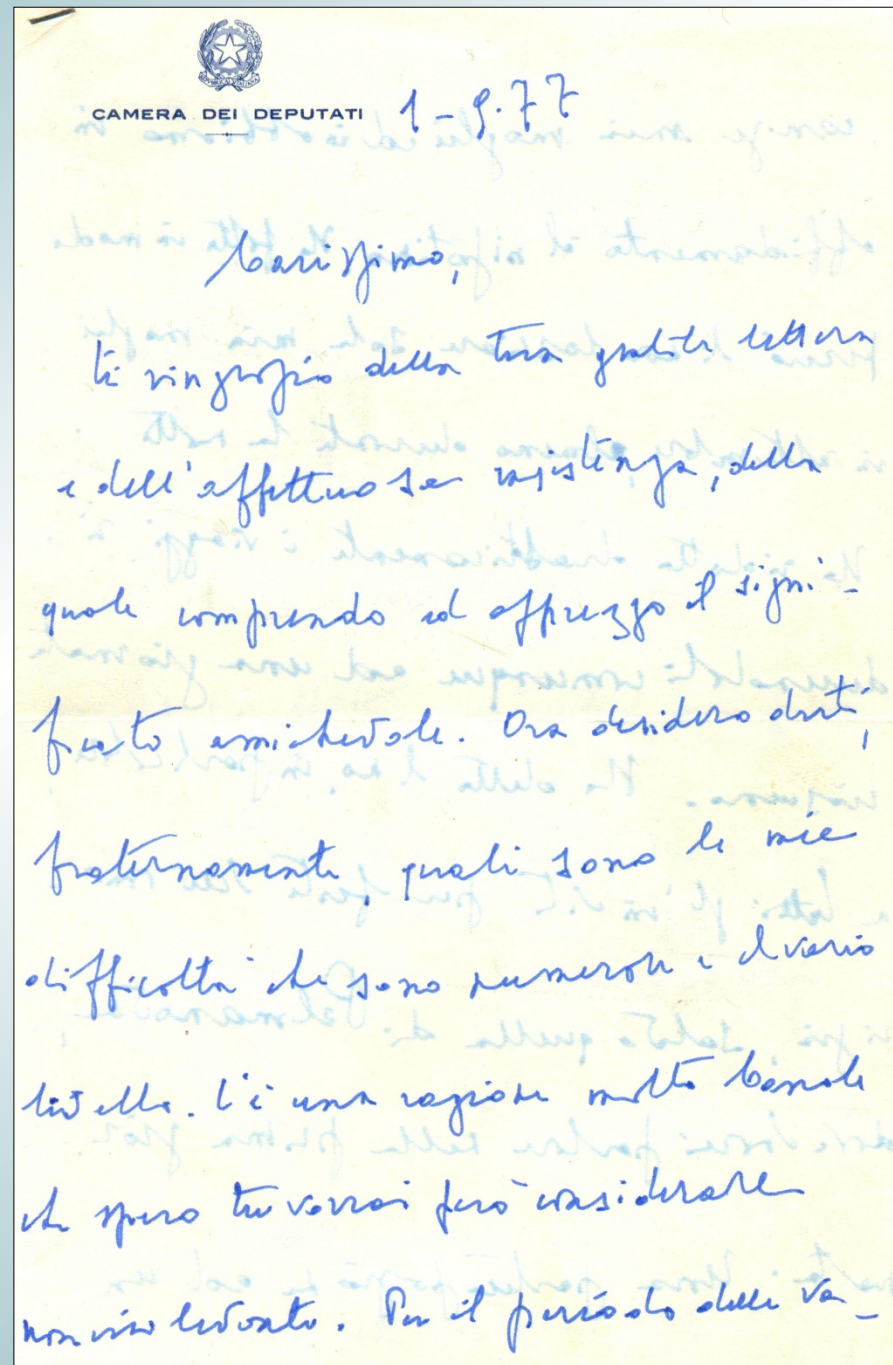 CAMERA DEI DEPUTATI 1-9.77
Carissimo,
ti ringrazio della tua gentile lettera
e dell'affettuosa insistenza, della
quale comprendo ed apprezzo il signi-
ficato amichevole. Ora desidero dirti,
fraternamente, quali sono le mie
difficoltà che sono numerose e di vario
livello. C'è una ragione molto banale
che spero tu vorrai però considerare
non irrilevante. Per il periodo delle va-